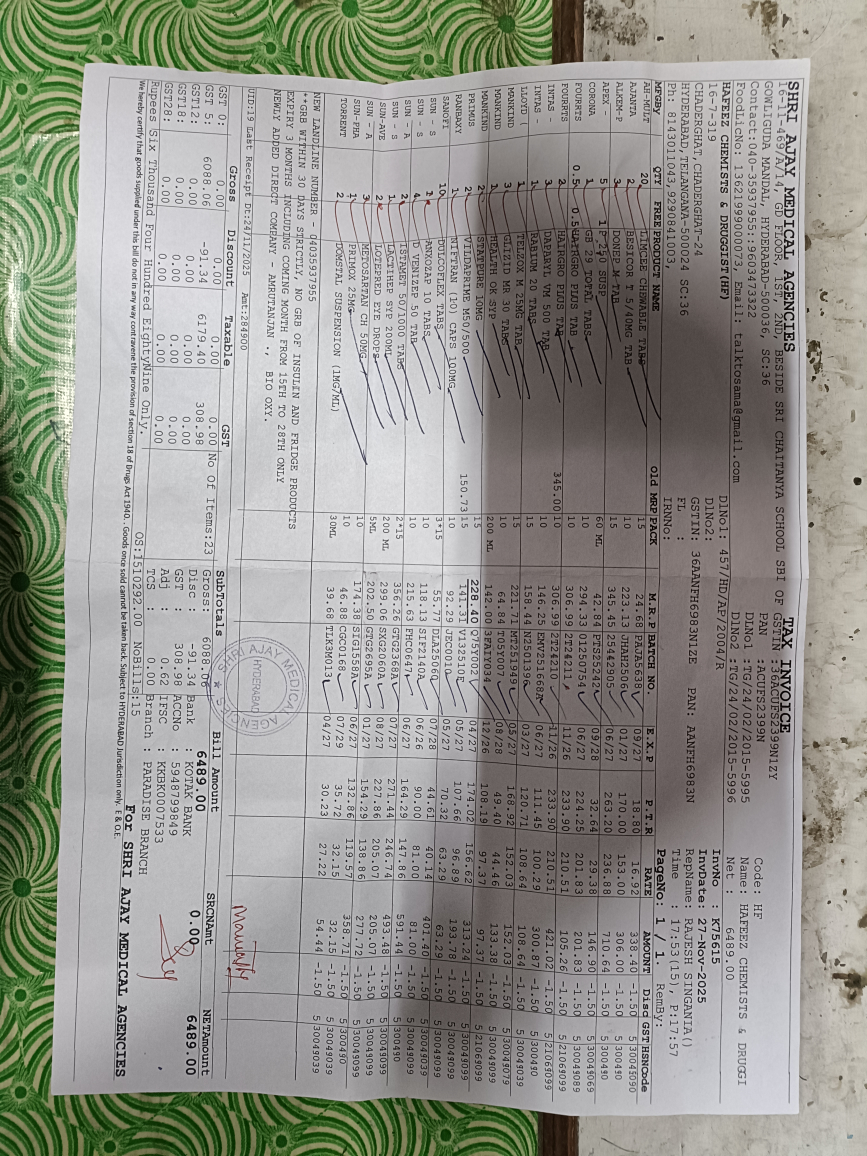 SHRI AJAY MEDICAL AGENCIES
TAX INVOICE
16-11-469/A/14, GD FLOOR, 1ST, 2ND, BESIDE SRI CHAITANYA SCHOOL SBI OF GSTIN :36ACUFS2399N1ZY
GOWLIGUDA MANDAL, HYDERABAD-500036, SC:36 PAN :ACUFS2399N
Contact:040-35937955::9603473322 DLNo1 :TG/24/02/2015-5995
FoodLicNo:13621999000073, Email: talktosama@gmail.com DLNo2 :TG/24/02/2015-5996
Code: HF
Name: HAFEEZ CHEMISTS & DRUGGI
Net : 6489.00
HAFEEZ CHEMISTS & DRUGGIST(HF) DlNo1: 457/HD/AP/2004/R
16-7-319 DlNo2:
CHADERGHAT,CHADERGHAT-24 GSTIN: 36AANFH6983N1ZE PAN: AANFH6983N
HYDERABAD,TELANGANA-500024 SC:36 FL :
Ph: 8143011043,9290841003, IRNNo:
InvNo : K75615
InvDate: 27-Nov-2025
RepName: RAJESH SINGANIA()
Time : 17:53(15), P:17:57
PageNo: 1 / 1. RemBy:
MFGBy QTY FREE PRODUCT NAME Old MRP PACK M.R.P BATCH NO. E.X.P P.T.R RATE AMOUNT Disd GST HSNCode
AH-MULT 20 LIMCEE CHEWABLE TABS 15 24.68 PAJA5638 09/27 18.80 16.92 338.40 -1.50 5 30045090
AJANTA 2 BESICOR T 5/40MG TAB 10 223.13 JHAH2506 01/27 170.00 153.00 306.00 -1.50 5 300490
ALKEM-P 3 DONEP 5 TAB 15 345.45 25442905 06/27 263.20 236.88 710.64 -1.50 5 300490
APEX - 5 SUSP 60 ML 42.84 PTS25242 09/28 32.64 29.38 146.90 -1.50 5 30049069
CORONA 1 GB 29 TOTAL TABS 10 294.33 01250754 06/27 224.25 201.83 201.83 -1.50 5 30049089
FOURRTS 0.5 0.5 HAIRGRO PLUS TAB 10 306.99 2TF24211 11/26 233.90 210.51 105.26 -1.50 5 21069099
FOURRTS 2 HAIRGRO PLUS TAB 345.00 10 306.99 2TF24210 11/26 233.90 210.51 421.02 -1.50 5 21069099
INTAS - 3 DAPABRYL VM 500 TAB 10 146.25 EMV251668A 06/27 111.45 100.29 300.87 -1.50 5 300490
INTAS - 1 RABIUM 20 TABS 15 158.44 NZ501396 03/27 120.71 108.64 108.64 -1.50 5 30049039
LLOYD ( 1 TELZOX M 25MG TAB 15 221.71 MT251949 05/27 168.92 152.03 152.03 -1.50 5 30049079
MANKIND 3 GLIZID MR 30 TABS 10 64.84 T05Y007 08/28 49.40 44.46 133.38 -1.50 5 30049099
MANKIND 1 HEALTH OK SYP 200 ML 142.00 3FA1Y034 12/26 108.19 97.37 97.37 -1.50 5 21069099
MANKIND 2 STATPURE 10MG 15 228.40 Q75Y002 04/27 174.02 156.62 313.24 -1.50 5 30049099
PRIMUS 2 VILDAPRIME M50/500 150.73 15 141.31 VT32510E 05/27 107.66 96.89 193.78 -1.50 5 30049099
RANBAXY 1 NIFTRAN (10) CAPS 100MG 10 92.29 05/27 70.32 63.29 63.29 -1.50 5 30049099
SANOFI 10 DULCOFLEX TABS 3*15 55.77 DLA25060 07/28 44.61 40.14 401.40 -1.50 5 30049039
SUN - S 1 PANXOZAP 10 TABS 10 118.13 SIF2140A 06/26 90.00 81.00 81.00 -1.50 5 30049099
SUN - S 4 D VENIZEP 50 TAB 10 215.63 FHC0647 06/27 164.29 147.86 591.44 -1.50 5 300490
SUN - A 2 ISTAMET 50/1000 TABS 2*15 356.26 GTG2368A 07/27 271.44 246.74 493.48 -1.50 5 30049099
SUN - S 1 LACTIHEP SYP 200ML 200 ML 299.06 SXG2060A 08/27 227.86 205.07 205.07 -1.50 5 30049099
SUN-AVE 2 LOTEPRED EYE DROPS 5ML 202.50 GTG2695A 01/27 154.29 138.86 277.72 -1.50 5 30049099
SUN - A 3 METOSARTAN CH 50MG 10 174.38 SIG1558A 06/27 132.86 119.57 358.71 -1.50 5 300490
SUN-PHA 1 PRIMOX 25MG 10 46.88 CGC0168 07/29 35.72 32.15 32.15 -1.50 5 30049099
TORRENT 2 DOMSTAL SUSPENSION (1MG/ML) 30ML 39.68 TLK3M013 04/27 30.23 27.22 54.44 -1.50 5 30049039
NEW LANDLINE NUMBER - 04035937955
**GRB WITHIN 30 DAYS STRICTLY, NO GRB OF INSULIN AND FRIDGE PRODUCTS
EXPIRY 3 MONTHS INCLUDING COMING MONTH FROM 15TH TO 28TH ONLY
NEWLY ADDED DIRECT COMPANY - AMRUTANJAN ., BIO OXY.
Manually
SHRI AJAY MEDICAL AGENCIES
HYDERABAD
UID:19 Last Receipt Dt:24/11/2025 Amt:284900
Gross Discount Taxable GST
GST 0: 0.00 0.00 0.00 0.00
GST 5: 6088.06 -91.34 6179.40 308.98
GST12: 0.00 0.00 0.00 0.00
GST18: 0.00 0.00 0.00 0.00
GST28: 0.00 0.00 0.00 0.00
No Of Items:23
SubTotals
Gross: 6088.06
Disc : -91.34
GST : 308.98
Adj : 0.62
TCS : 0.00
Bill Amount
6489.00
Bank : KOTAK BANK
ACCNo : 5948799849
IFSC : KKBK0007533
Branch : PARADISE BRANCH
SRCNAmt
0.00
NETAmount
6489.00
Rupees Six Thousand Four Hundred EightyNine Only. OS:1510292.00 NoBills:15
We hereby certify that goods supplied under this bill do not in any way contravene the provision of section 18 of Drugs Act 1940. . Goods once sold cannot be taken back. Subject to HYDERABAD Jurisdiction only. E & O.E.
For SHRI AJAY MEDICAL AGENCIES